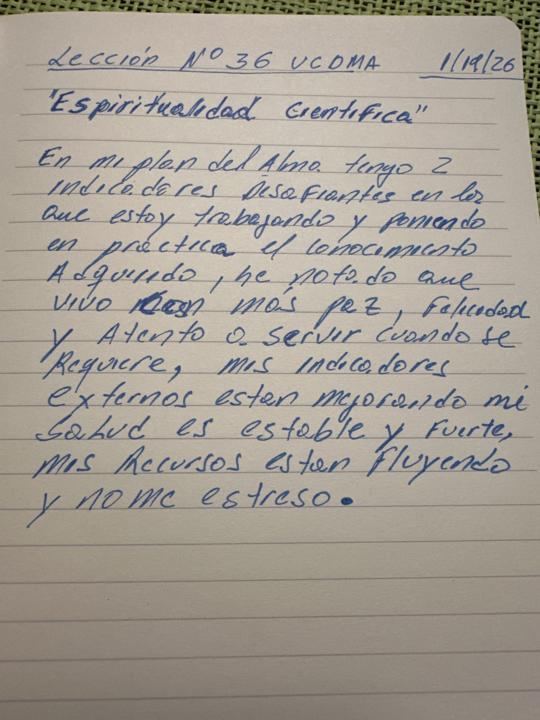 Lección Nº 36 UCDMA 1/19/26
"Espiritualidad Científica"
En mi plan del Alma tengo 2
indicadores Desafiantes en los
que estoy trabajando y poniendo
en práctica el conocimiento
Adquirido, he notado que
vivo con más paz, Felicidad
y Atento a servir cuando se
Requiere, mis indicadores
externos estan mejorando mi
Salud es estable y Fuerte,
mis Recursos estan Fluyendo
y no me estreso.